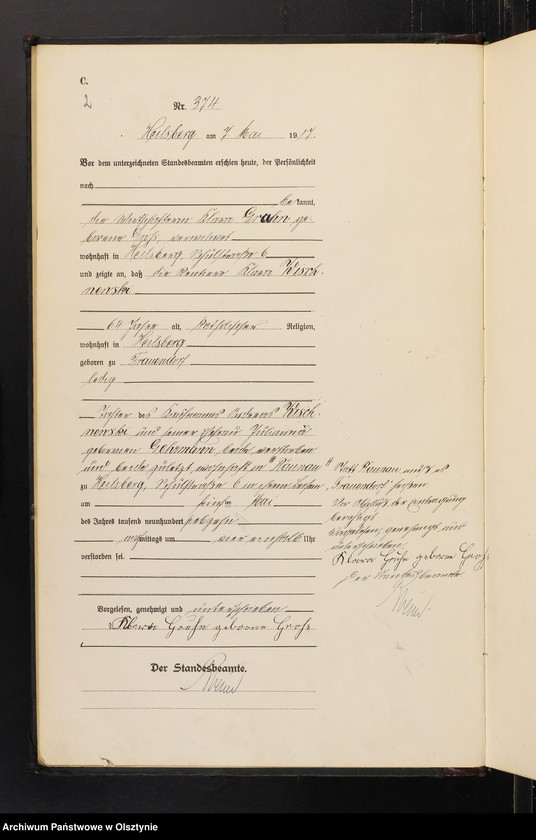 C.
2
Nr. 374
Heilsberg am 7 Mai 1917.
Vor dem unterzeichneten Standesbeamten erschien heute, der Persönlichkeit
nach
bekannt,
die Klara ge-
borene verwitwet
wohnhaft in Heilsberg, Schulstraße 6
und zeigte an, daß die Rentiere Klara Wisch-
newski
64 Jahre alt, katholischer Religion,
wohnhaft in Heilsberg
geboren zu Frauendorf
ledig
Tochter des Kaufmanns Andreas Wisch-
newski und seiner Ehefrau Julianna
geborenen Gehrmann beide verstorben
und beide zuletzt wohnhaft in "Raunau"
zu Heilsberg, Schulstraße 6 in
am fünften Mai
des Jahres tausend neunhundert
mittags um Uhr
verstorben sei.
Vorgelesen, genehmigt und unterschrieben
Klara geborene
Der Standesbeamte.
Statt Raunau muß es
Frauendorf heißen
Vor Abschluß der Eintragung
berichtigt
Vorgelesen, genehmigt und
unterschrieben
Klara geborene
Der Standesbeamte
Archiwum Państwowe w Olsztynie